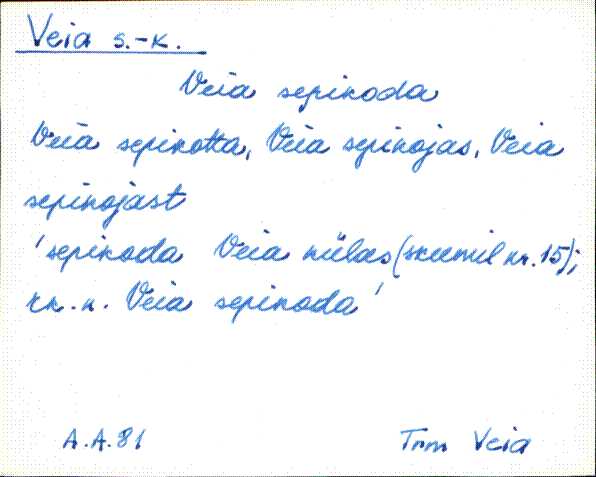 Veia s.-k.
Veia sepikoda
Veia sepikotta, Veia sepikojas, Veia
sepikojast
'sepikoda Veia külas (skeemil nr. 15);
rk. n. Veia sepikoda'
A.A.81 Trm Veia